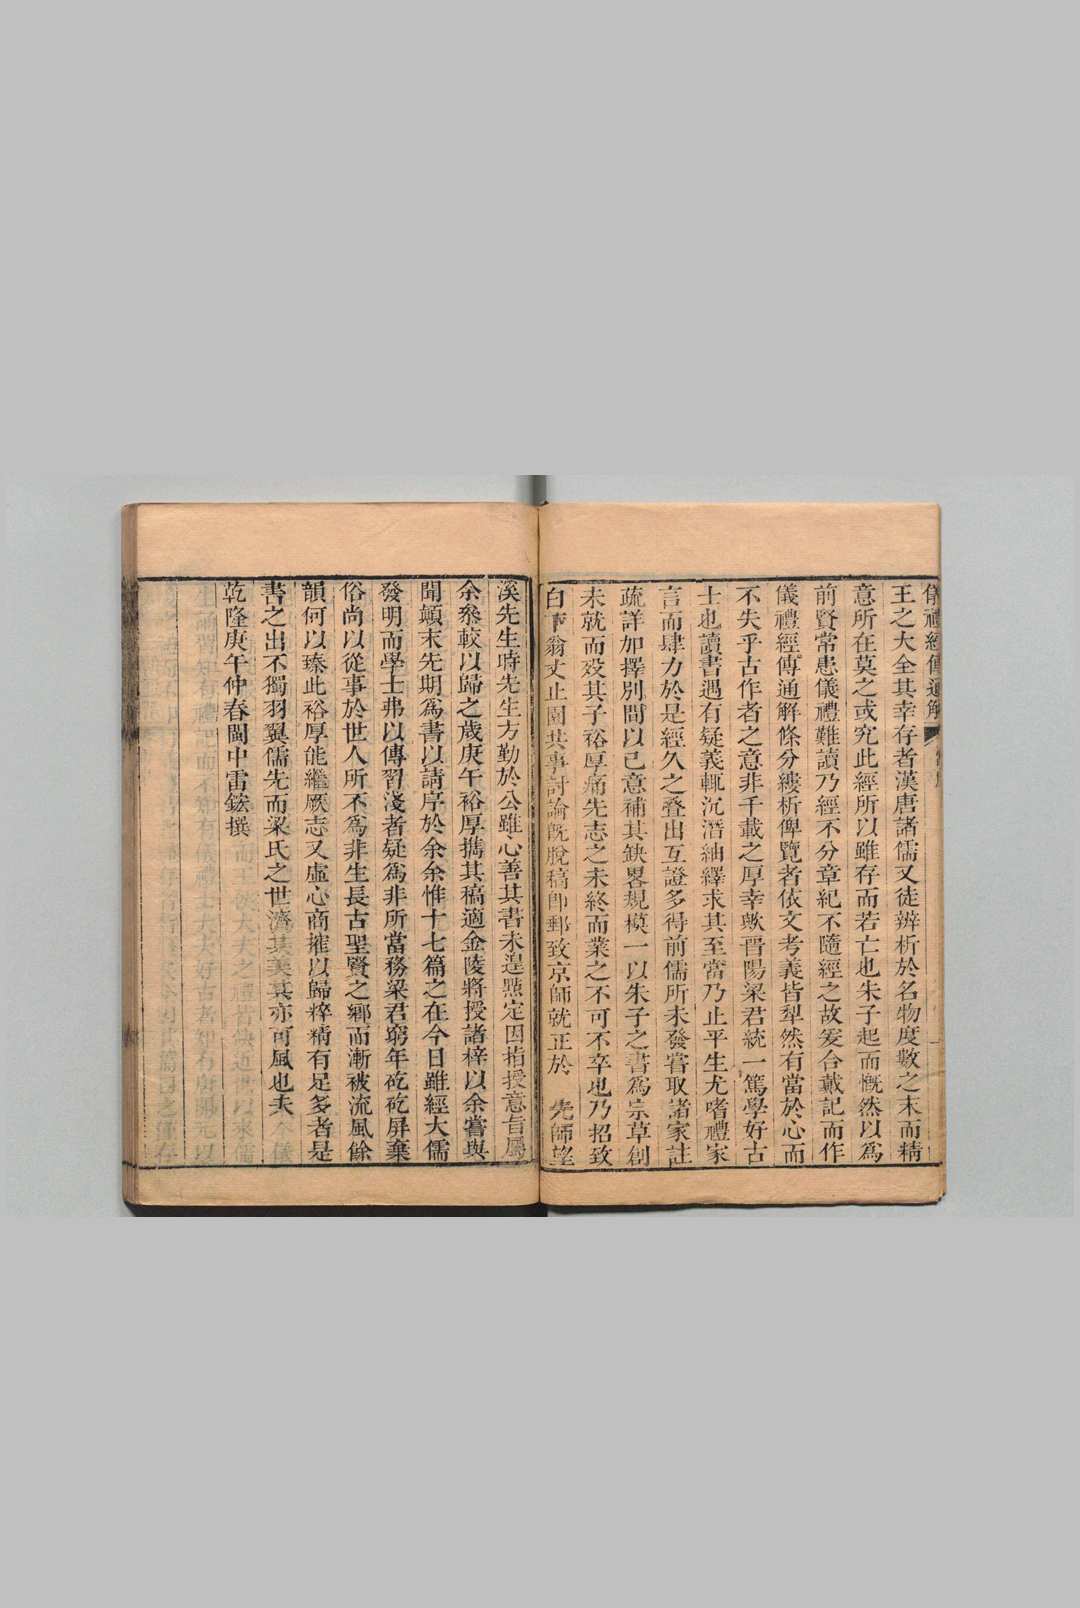 儀禮經傳通解
王之大全其幸存者漢唐諸儒又徒辨析於名物度數之末而精
意所在莫之或究此經所以雖存而若亡也朱子起而慨然以爲
前賢常患儀禮難讀乃經不分章紀不隨經之故爰合戴記而作
儀禮經傳通解條分縷析俾覽者依文考義皆犁然有當於心而
不失乎古作者之意非千載之厚幸歟晋陽梁君統一篤學好古
士也讀書遇有疑義輒沉潛紬繹求其至當乃止平生尤嗜禮家
言而肆力於是經久之叠出互證多得前儒所未發嘗取諸家註
疏詳加擇別間以己意補其缺畧規模一以朱子之書爲宗草創
未就而歿其子裕厚痛先志之未終而業之不可不卒也乃招致
白下翁丈止園共事討論旣脫稿卽郵致京師就正於 先師望
溪先生時先生方勤於公雖心善其書未遑㸃定因指授意旨屬
余叅較以歸之歲庚午裕厚擕其稿適金陵將授諸梓以余嘗與
聞顛末先期爲書以請序於余余惟十七篇之在今日雖經大儒
發明而學士弗以傳習淺者疑爲非所當務梁君窮年矻矻屏棄
俗尚以從事於世人所不爲非生長古聖賢之鄉而漸被流風餘
韻何以臻此裕厚能繼厥志又虛心商搉以歸粹精有足多者是
書之出不獨羽翼儒先而梁氏之世濟其美其亦可風也夫
乾隆庚午仲春閩中雷鋐撰